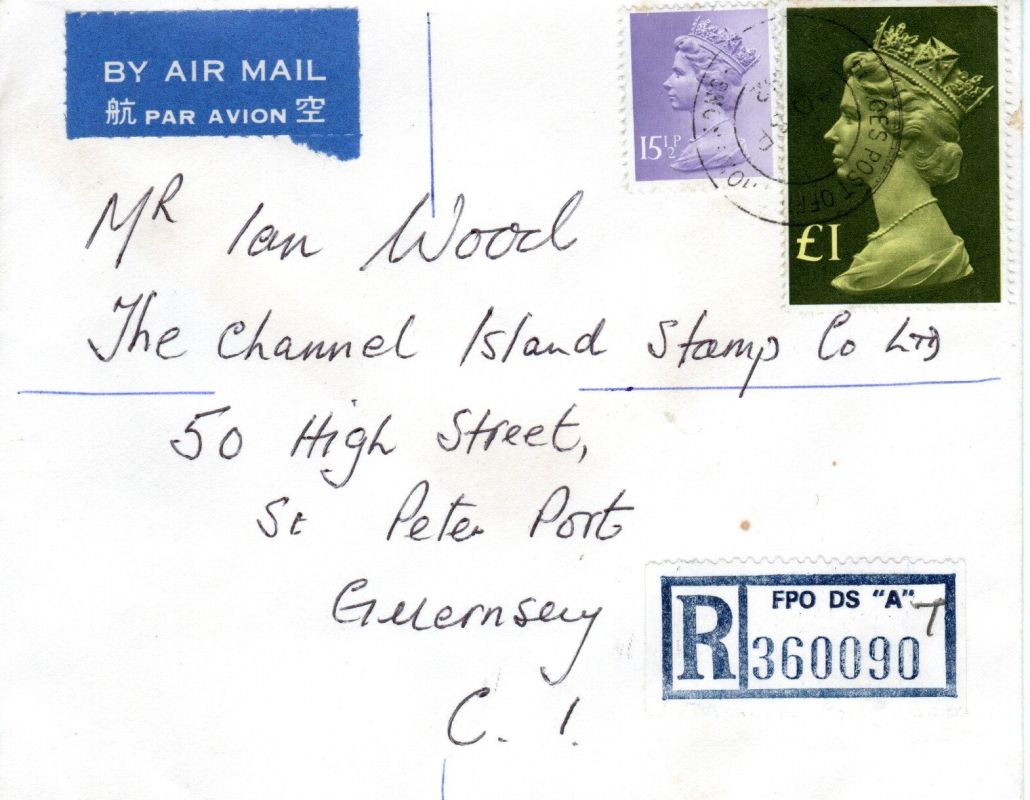 BY AIR MAIL
航 PAR AVION 空
15½P
£1
Mr Ian Wood
The Channel Island Stamp Co LTD
50 High Street,
St Peter Port
Guernsey
C. I.
R
FPO DS "A" T
360090